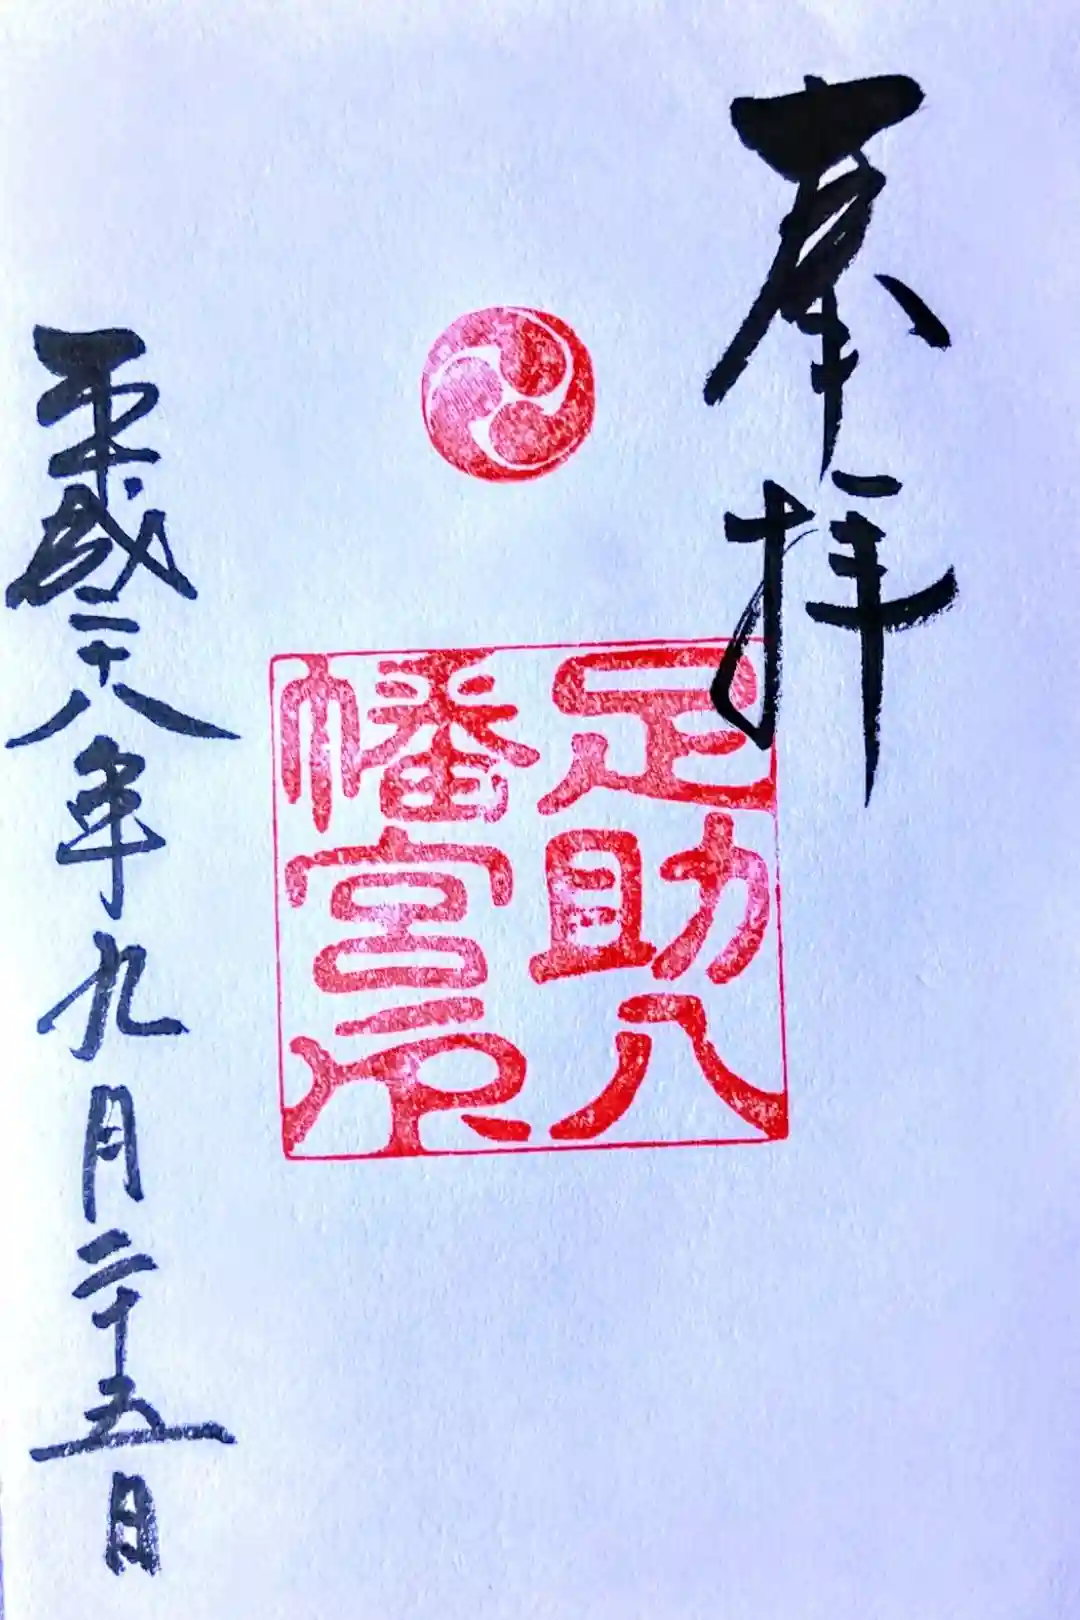 奉拝
足助八
幡宮示
平成二十八年九月二十五日